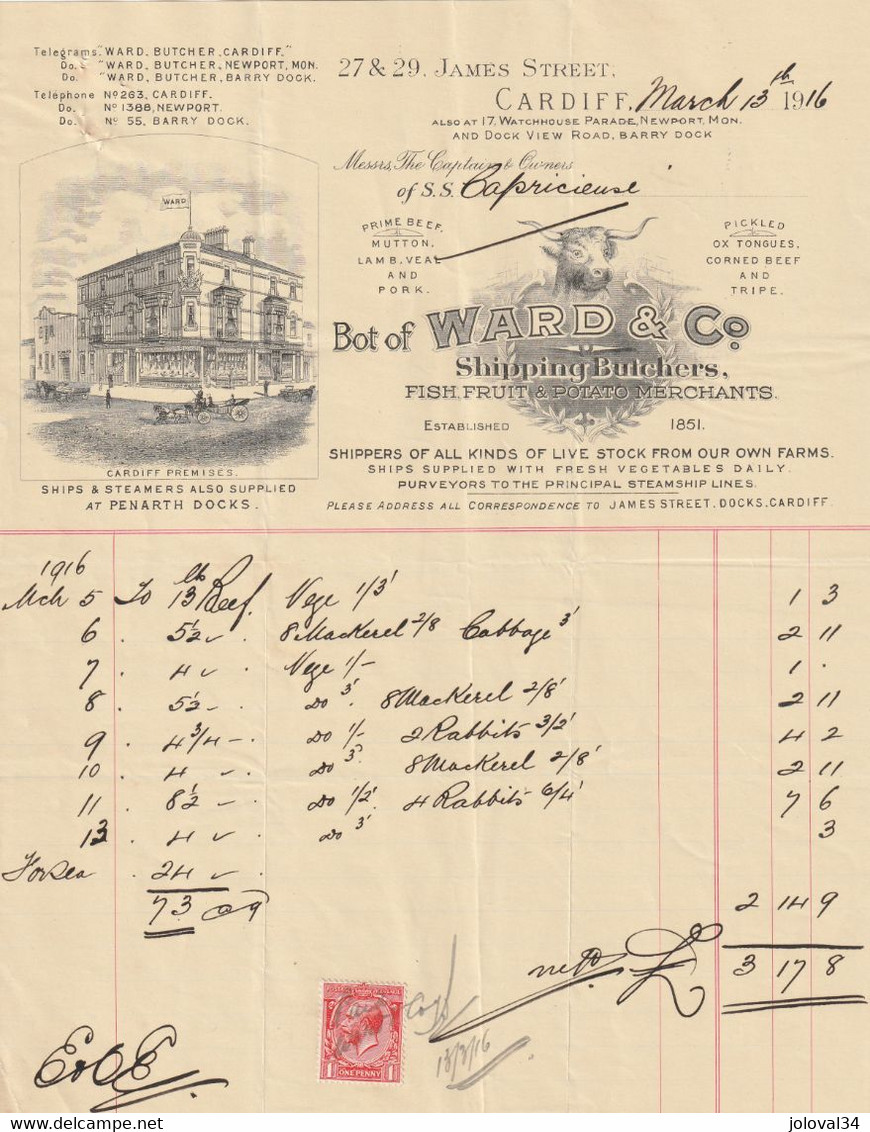 Telegrams "WARD, BUTCHER, CARDIFF."
Do. "WARD, BUTCHER, NEWPORT, MON.
Do. "WARD, BUTCHER, BARRY DOCK.
Telephone No 263, CARDIFF.
Do. No 1388, NEWPORT.
Do. No 55, BARRY DOCK.
27 & 29, JAMES STREET,
CARDIFF, March 13th 1916
ALSO AT 17, WATCHHOUSE PARADE, NEWPORT, MON.
AND DOCK VIEW ROAD, BARRY DOCK
Messrs, The Captain & Owners
of S.S. Capricieuse
WARD
PRIME BEEF,
MUTTON,
LAMB, VEAL
AND
PORK.
PICKLED
OX TONGUES,
CORNED BEEF
AND
TRIPE.
Bot of WARD & Co.
Shipping Butchers,
FISH, FRUIT & POTATO MERCHANTS.
ESTABLISHED 1851.
CARDIFF PREMISES.
SHIPS & STEAMERS ALSO SUPPLIED
AT PENARTH DOCKS.
SHIPPERS OF ALL KINDS OF LIVE STOCK FROM OUR OWN FARMS.
SHIPS SUPPLIED WITH FRESH VEGETABLES DAILY.
PURVEYORS TO THE PRINCIPAL STEAMSHIP LINES.
PLEASE ADDRESS ALL CORRESPONDENCE TO JAMES STREET, DOCKS, CARDIFF.
1916
Mch 5 To 13 lb Beef. Vege 1/3' 1 3
6 . 5½ . 8 Mackerel 2/8 Cabbage 3' 2 11
7 . 4 . Vege 1/- 1 .
8 . 5½ - . Do 3' . 8 Mackerel 2/8' 2 11
9 . 4 3/4 - . Do 1/- 2 Rabbits 3/2' 4 2
10 . 4 . Do 3' 8 Mackerel 2/8' 2 11
11 . 8½ - . Do 1/2' 4 Rabbits 6/4' 7 6
13 . 4 . Do 3' 3
For Sea 24
73 @ 9 2 14 9
nett £ 3 17 8
ONE PENNY
1 1
13/3/16
E & O E
delcampe.net
joloval34